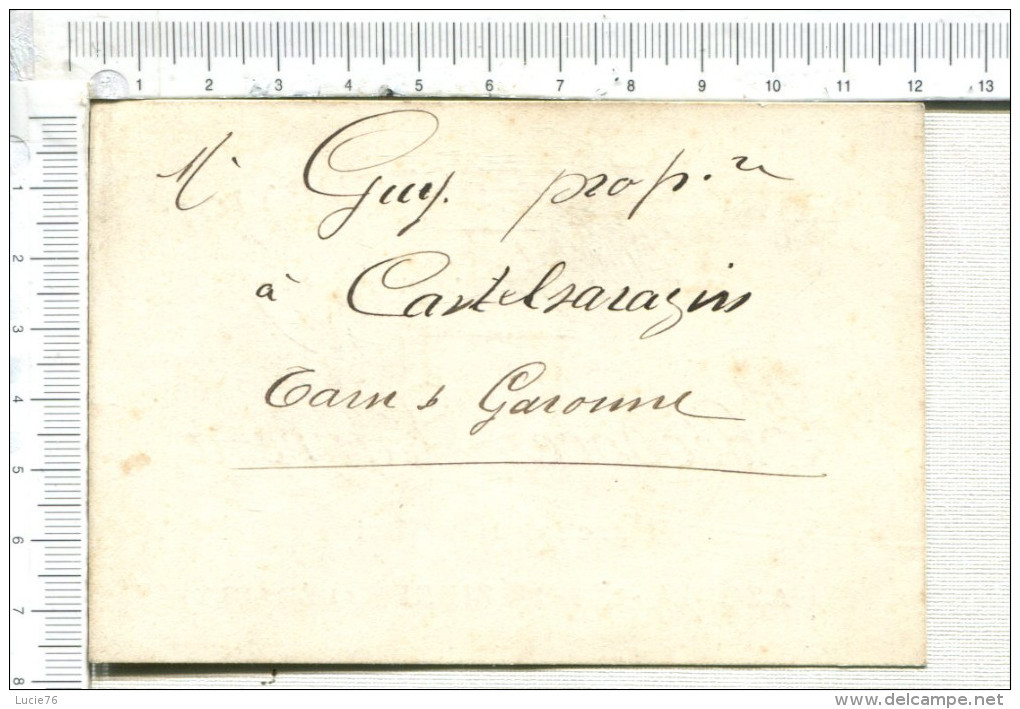 1 2 3 4 5 6 7 8 9 10 11 12 13
Mr Guy. prop.re
à Castelsarazin
Tarn & Garonne
1
2
3
4
5
6
7
8
Lucie76
www.delcampe.net